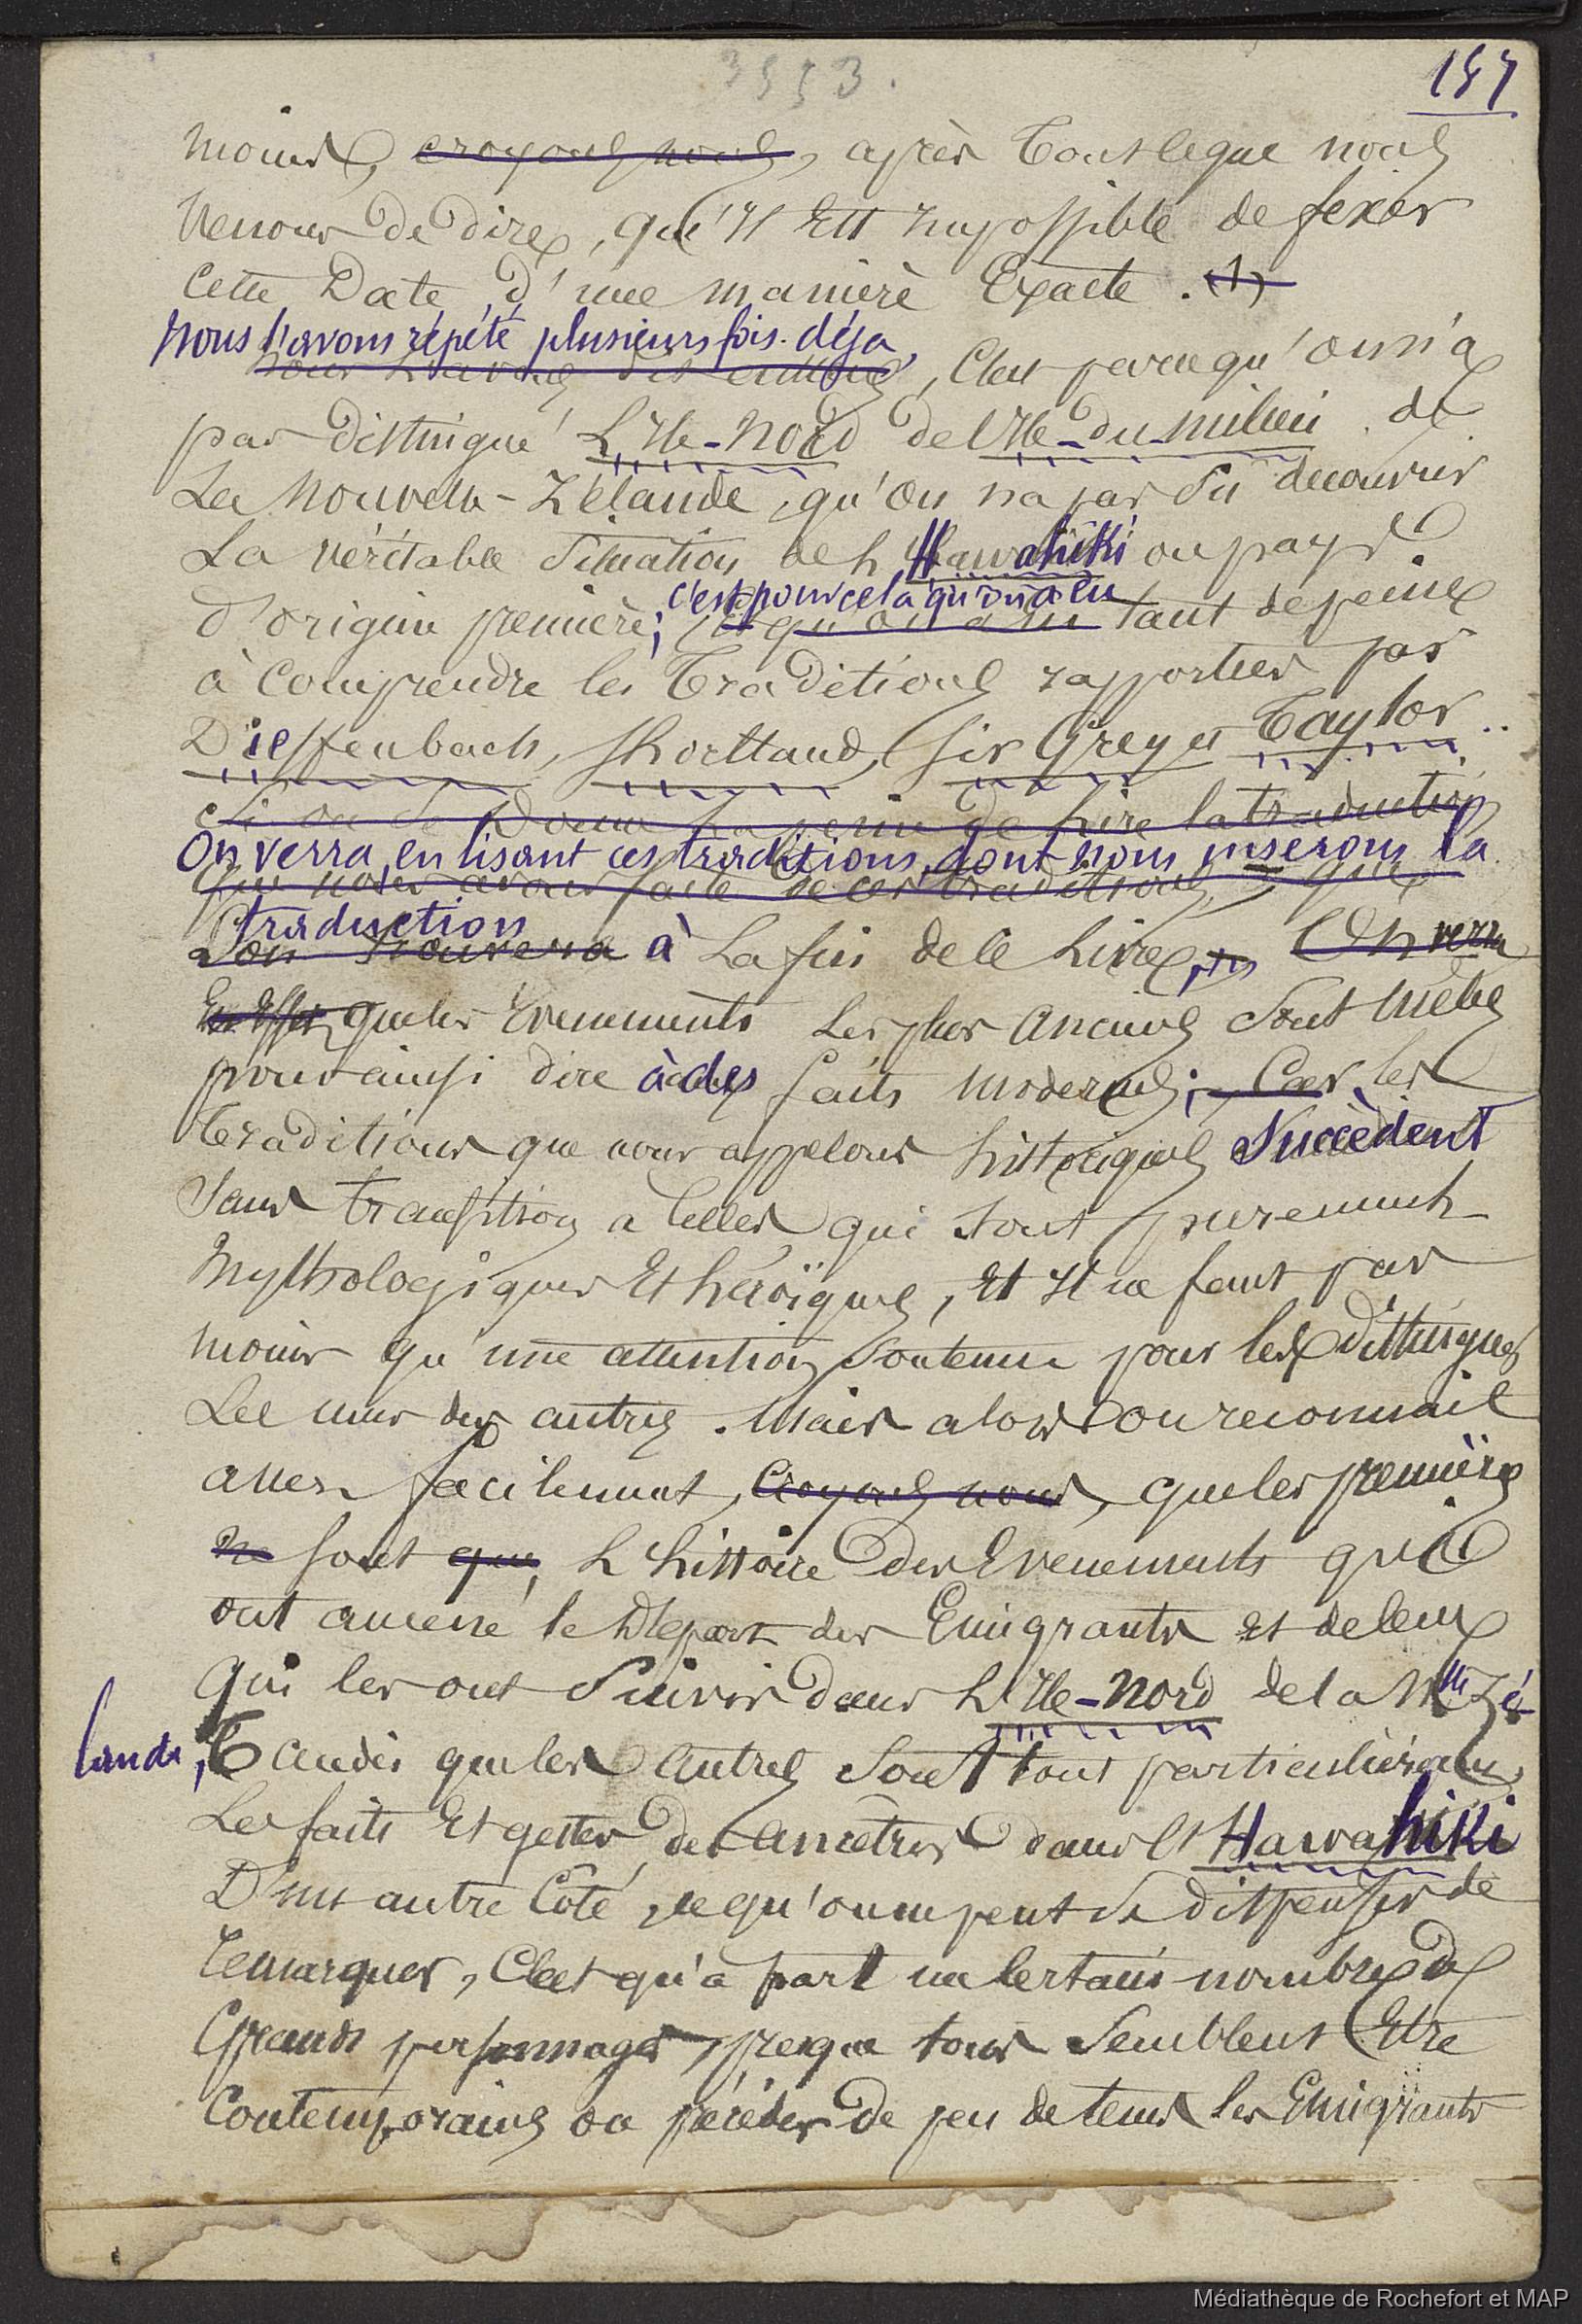 3553.
157
moins, croyons nous, après tout ce que nous
venons de dire, qu'il est impossible de fixer
cette Date d'une manière Exacte. (1)
Nous l'avons répété plusieurs fois déja,
nous l'avons dit , c'est parcequ'on n'a
pas distingué L'Ile-Nord de l'Ile-du-milieu de
La Nouvelle-Zélande, qu'on n'a pas su découvrir
La véritable Situation de l'Hawahiki ou pays
c'est pour cela qu'on a eu
d'origine première; et qu'on a eu tant de peine
à Comprendre les Traditions rapportées par
Dieffenbach, Shortland, Sir Grey et Taylor..
Si on se Donne la peine de Lire la traduction
On verra, en lisant ces traditions, dont nous inserons la
que nous avons faite de ces traditions, que
traduction
l'on trouvera à La fin de ce Livre, On verra
En Effet que les Evenements Les plus Anciens Sont mêlés
pour ainsi dire à des faits modernes; Car les
Traditions que nous appelons historiques Succèdent
Sans transition a Celles qui sont purement
Mythologiques Et héroïques, Et Il ne faut pas
moins qu'une attention Soutenue pour les distinguer
Les unes des autres. Mais alors on reconnait
assez facilement, Croyons nous, que les premières
ne sont que L'histoire des Evenements qui
ont amené le Départ des Emigrants et de ceux
qui les ont Suivis dans L'Ile-Nord de la Nlle Zé-
lande, Tandis que les autres Sont tout particulièrement
Les faits Et gestes des Ancêtres dans l'Hawahiki
D'un autre Coté, ce qu'on ne peut se dispenser de
remarquer, C'est qu'à part un certain nombre de
Grands personnages, presque tous Semblent Etre
Contemporains ou précéder de peu de tems les Emigrants
Médiathèque de Rochefort et MAP